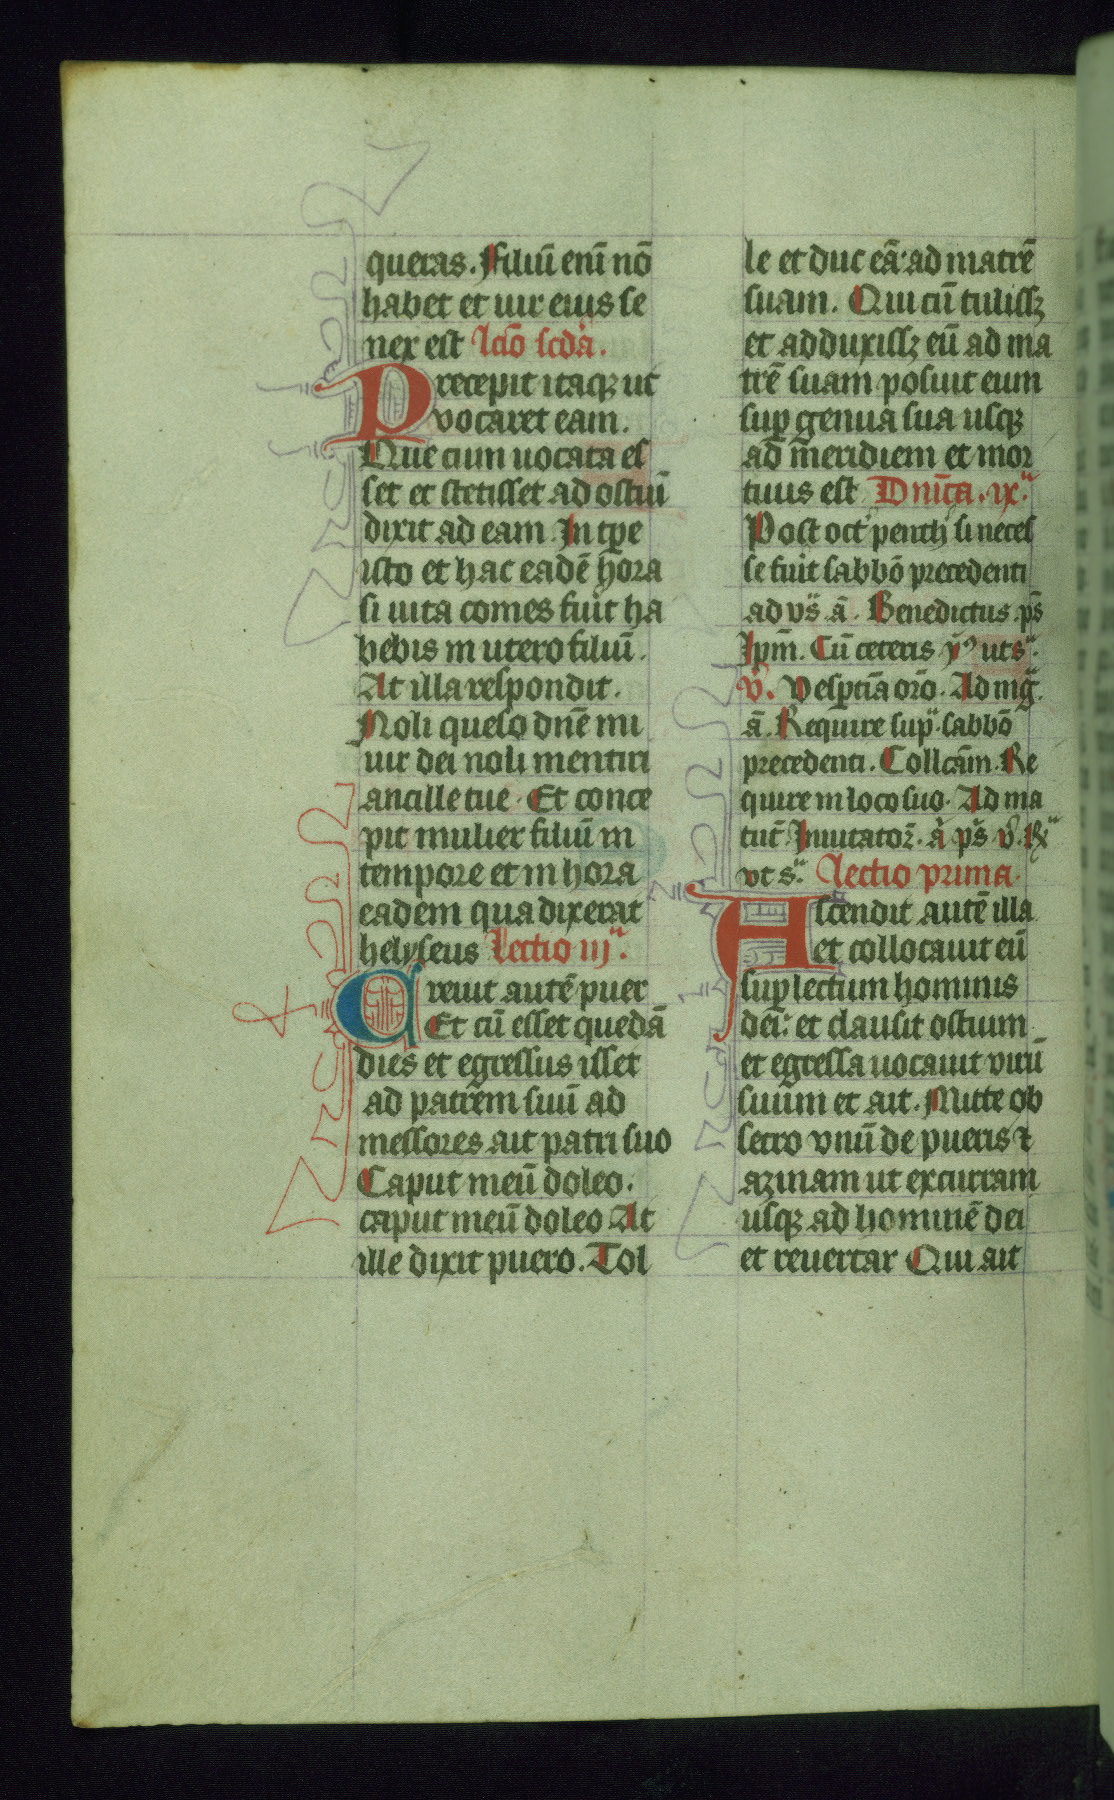 queras. Filiū enī nō
habet et uir eius se
nex est lcīo scdā.
Precepit itaqꝫ ut
vocaret eam.
Que cum uocata es
set et stetisset ad ostiū
dixit ad eam. In tp̄e
isto et hac eadē hora
si uita comes fuīt ha
bebis in utero filiū.
At illa respondit.
Noli queso dn̄e mi
uir dei noli mentiri
ancille tue. Et conce
pit mulier filiū in
tempore et in hora
eadem qua dixerat
helyseus Lectio iij.ª
Creuit autē puer
Et cū esset quedā
dies et egressus isset
ad patrem suū ad
messores ait patri suo
Caput meū doleo.
caput meū doleo At
ille dixit puero. Tol
le et duc eū ad matrē
suam. Qui cū tulissꝫ
et adduxissꝫ eū ad ma
trē suam posuit eum
sup̱ genua sua usqꝫ
ad meridiem et mor
tuus est Dnīca .ix.ª
Post oct penth si neces
se fuīt sabbō precedenti
ad vs̄ ā. Benedictus. ps̄
Ipm̄. Cū ceteris ut sª.
v̄. Vesp̱tīa orō. Ad mg̅.
ā. Require supª. sabbō
precedenti. Collcām. Re
quire in loco suo. Ad ma
tut̄. Inuitatoꝝ. ā ps̄ v̄. Rxª
vt sª. Lectio prima.
Ascendit autē illa
et collocauit eū
sup̱ lectum hominis
dei: et clausit ostium
et egressa uocauit virū
suum et ait. Mitte ob
secro vnū de pueris ⁊
azinam ut excurram
usqꝫ ad hominē dei
et reuertar Qui ait